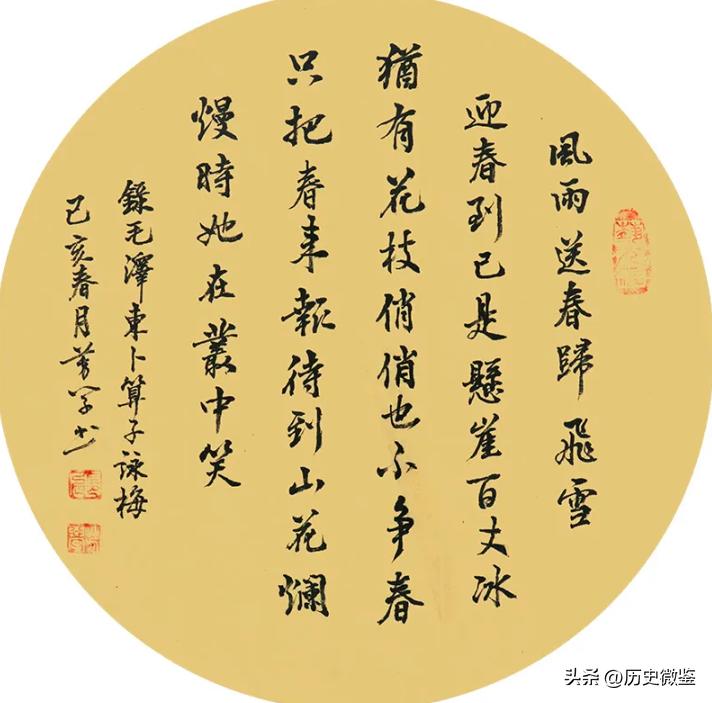 風雨送春歸飛雪
迎春到已是懸崖百丈冰
猶有花枝俏俏也不争春
只把春来報待到山花爛
熳時她在叢中笑
錄毛澤東卜算子詠梅
己亥春月
头条 @历史微鉴